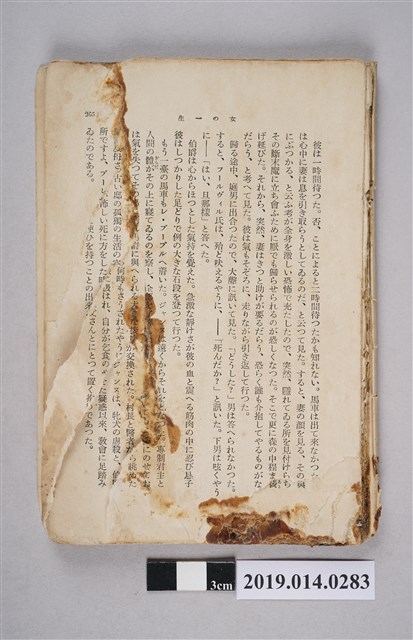 女の一生
265
彼は一時間待つた。否、ことによると二時間待つたかも知れない。馬車は出て來なかつた
は心中に妻は息を引き取らうとしてゐるのだ、と云つて見た。すると、妻の顏を見る、その
にぶつかる、と云ふ考が全身を激しい恐怖で充たしたので、突然、隱れてゐる所を見付けられ
その斷末魔に立ち會ふために厭でも歸らせられるのが恐しくなつた。そこで更に森の中程まで
げ延びた。それから、突然、妻はきつと助けが要るだらう、恐らく誰も介抱してやるものがな
だらう、と考へて見た。彼は氣もそぞろに、走りながら引き返して行つた。
歸る途中、庭男に出合つたので、大聲に訊いて見た。「どうした？」男は答へられなかつた。
すると、フールヴィル氏は、殆ど吠えるやうに、――「死んだか？」と訊いた。下男は呟くやう
に――「はい、旦那樣」と答へた。
伯爵は心からほつとした氣持を覺えた。急激な靜けさが彼の血と震へる筋肉の中に忍び
彼はしつかりした足どりで例の大きな石段を登つて行つた。
もう一臺の馬車もレ・プープルへ着いた。
人間の體がその上に寢てゐるのを察し、
は氣を失つて
交換された。村長と
古い邸の孤獨の生活の
何時もさうされたやう
ジャンヌは、牝犬の虐殺と、
所ですよ、
怖しい死に方をした
自分が
疑惑以來、敎會に足踏み
持つことの出來
さんとにとつて置く
であつた。
ゐたのである。
3cm
2019.014.0283